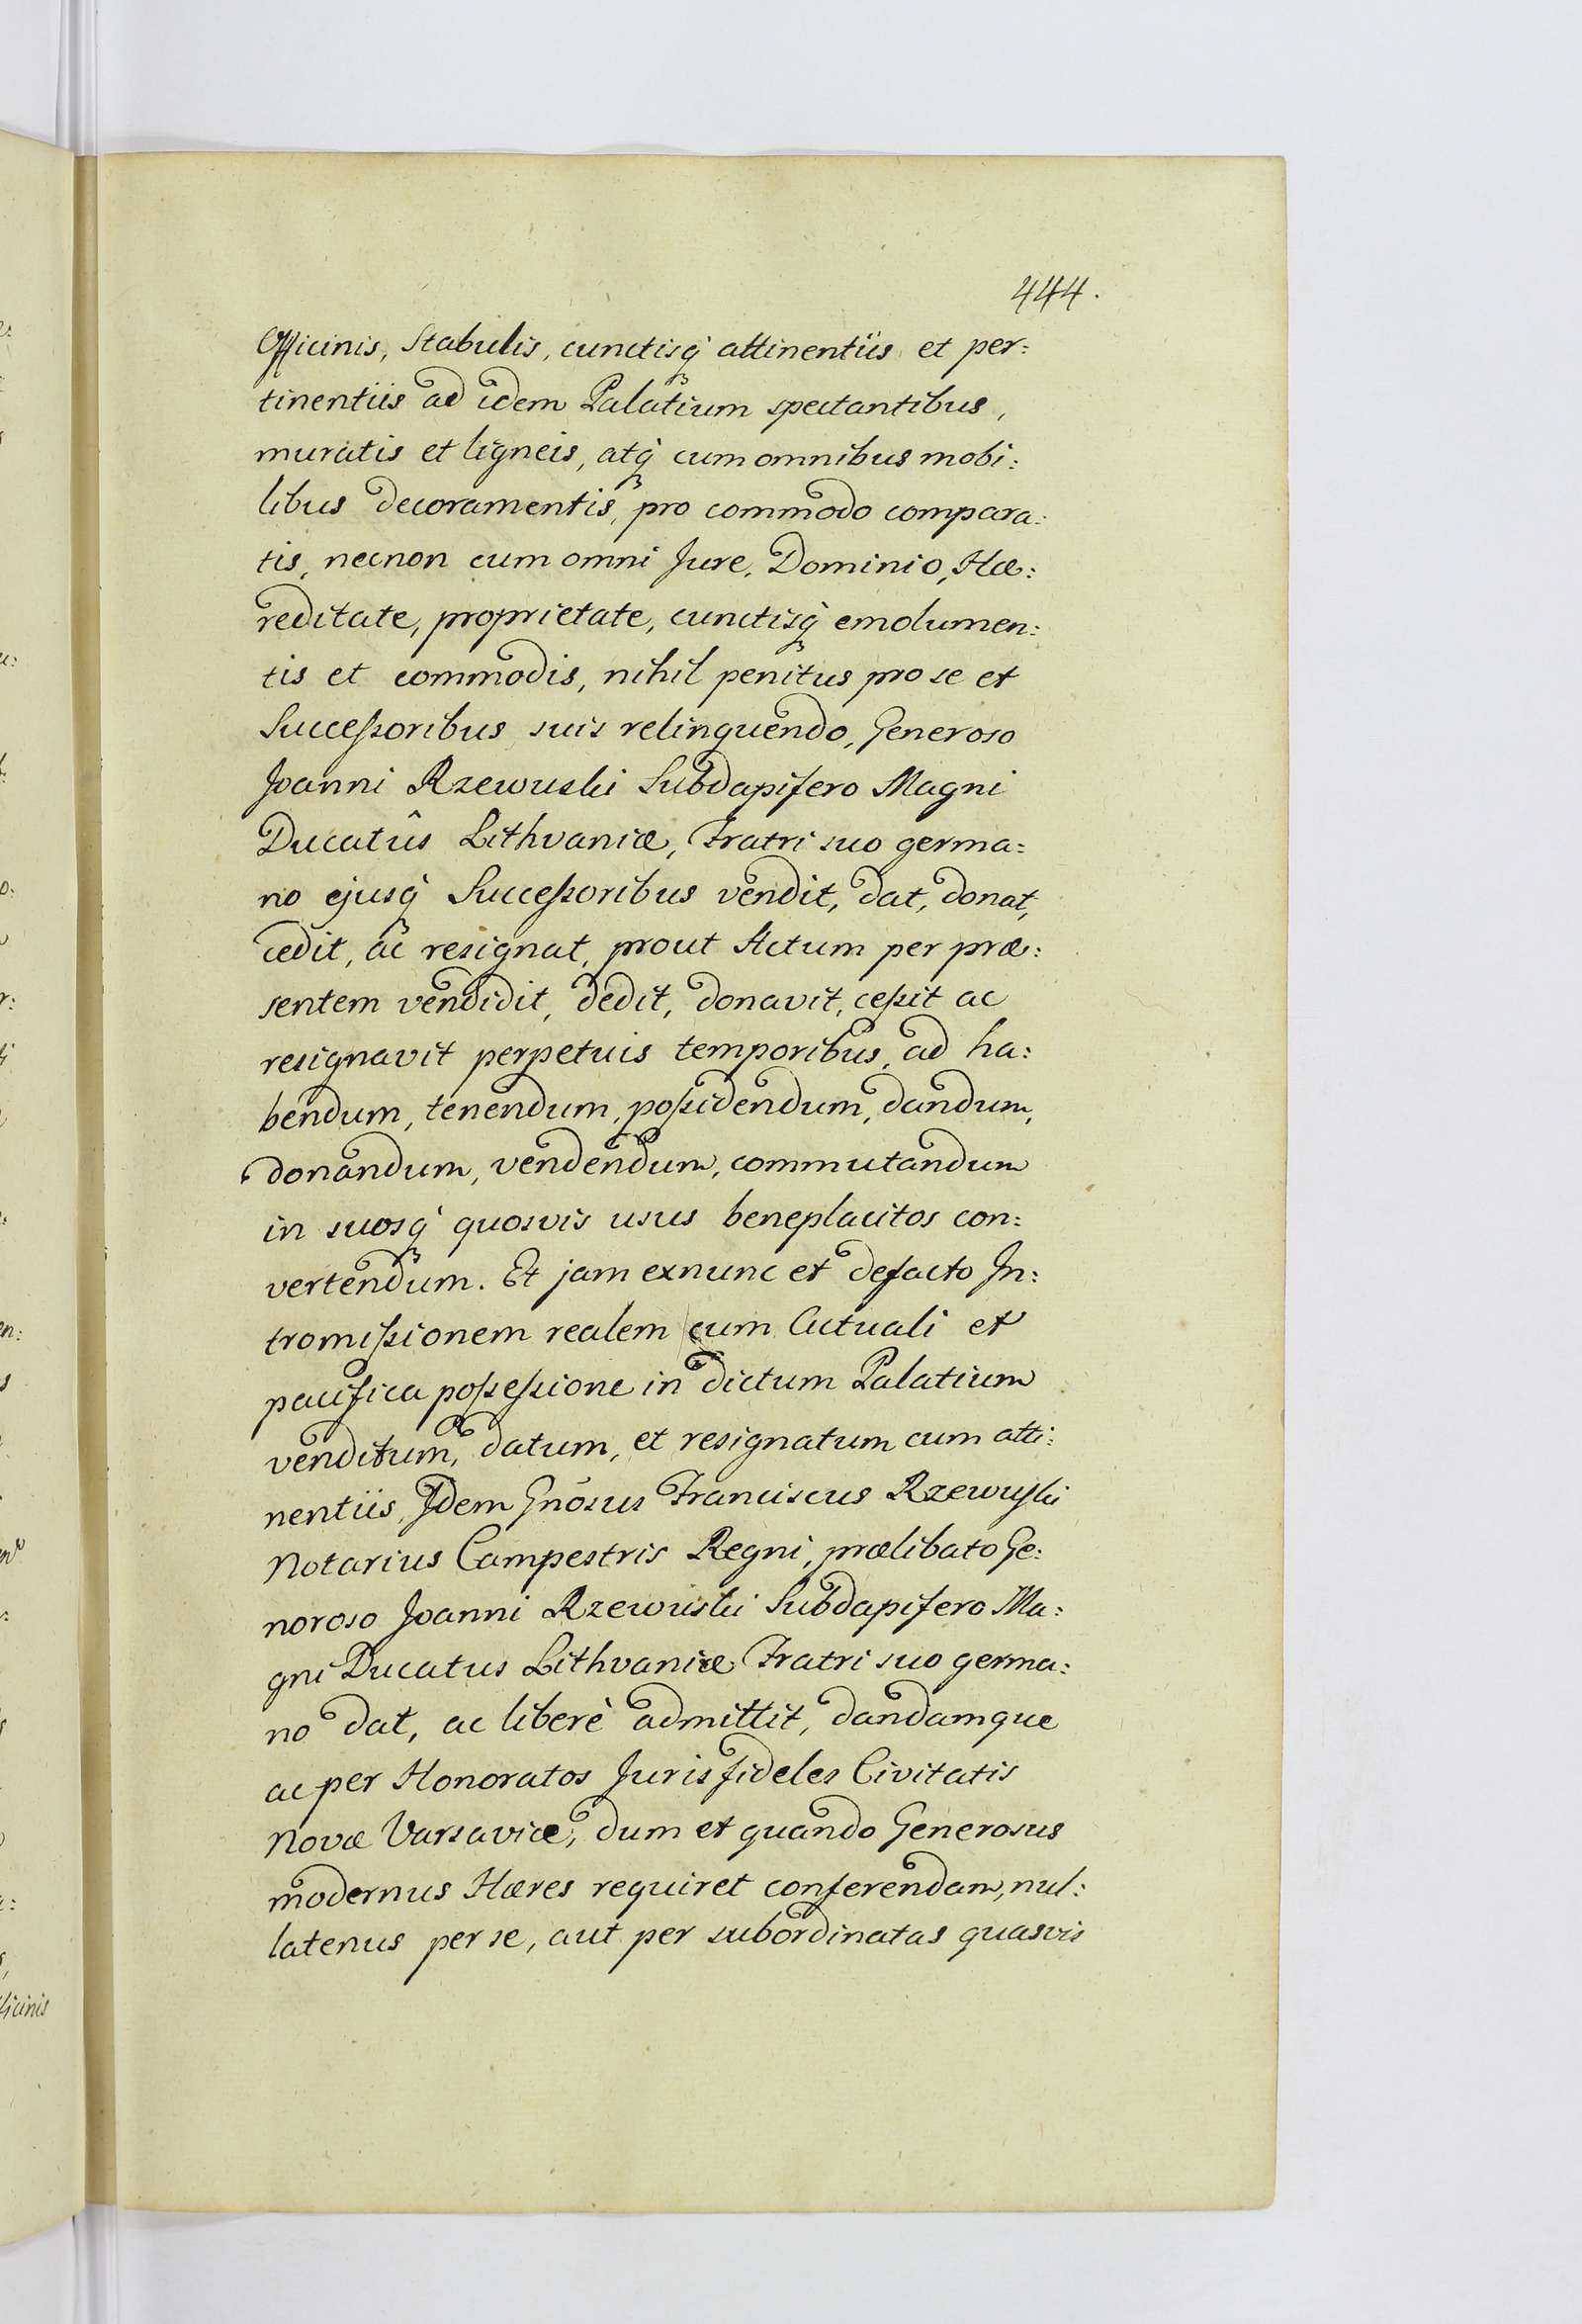 444.
Officinis, Stabulis, cunctisq́ attinentiis et per:
tinentiis ad idem Palatium spectantibus,
muratis et ligneis, atq́ cum omnibus mobi:
libus decoramentis, pro commodo compara:
tis, necnon cum omni Jure, Dominio, Hæ:
reditate, proprietate, cunctisq́ emolumen:
tis et commodis, nihil penitus pro se et
Successoribus suis relinquendo, Generoso
Joanni Rzewuski Subdapifero Magni
Ducatûs Lithvaniæ, Fratri suo germa:
no ejusq́ Successoribus vendit, dat, donat,
cedit, ac resignat, prout Actum per præ:
sentem vendidit, dedit, donavit, cessit ac
resignavit perpetuis temporibus, ad ha:
bendum, tenendum, possidendum, dandum,
donandum, vendendum, commutandum
in suosq́ quosvis usus beneplacitos con:
vertendum. Et jam exnunc et defacto In:
tromissionem realem cum Actuali et
pacifica possessione in dictum Palatium
venditum, datum, et resignatum cum atti:
nentiis, Idem Gnōsus Franciscus Rzewuski
Notarius Campestris Regni, prælibato Ge:
noroso Joanni Rzewuski Subdapifero Ma:
gni Ducatus Lithvaniæ Fratri suo germa:
no dat, ac liberè admittit, dandamque
ac per Honoratos Juris fideles Civitatis
Novæ Varsaviæ, dum et quando Generosus
modernus Hæres requiret conferendam, nul:
latenus per se, aut per subordinatas quasvis